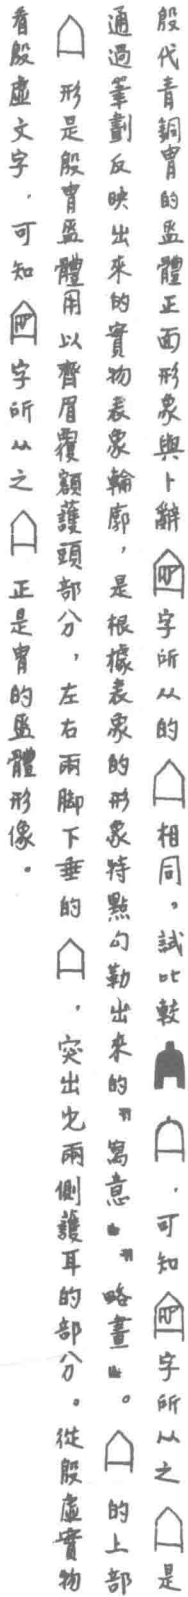 殷代青銅冑的盔體正面形象與卜辭字所从的相同，試比較，可知字所从之是
通過筆劃反映出來的實物表象輪廓，是根據表象的形象特點勾勒出來的〝寫意〞〝略畫〞。的上部
形是殷冑盔體用以齊眉覆額護頭部分，左右兩脚下垂的，突出它兩側護耳的部分。從殷虛實物
看殷虛文字，可知字所从之正是冑的盔體形像。